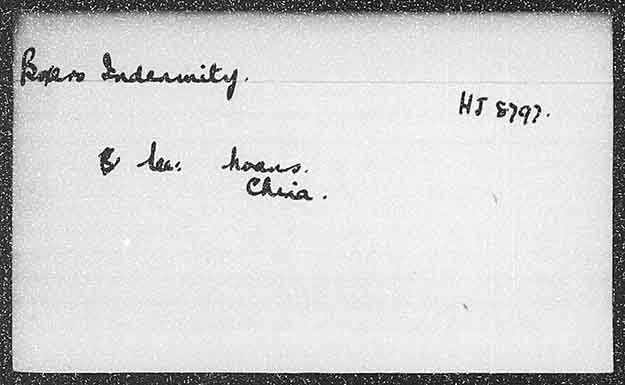 Boxers Indemnity.
HJ 8797.
See: Loans.
China.